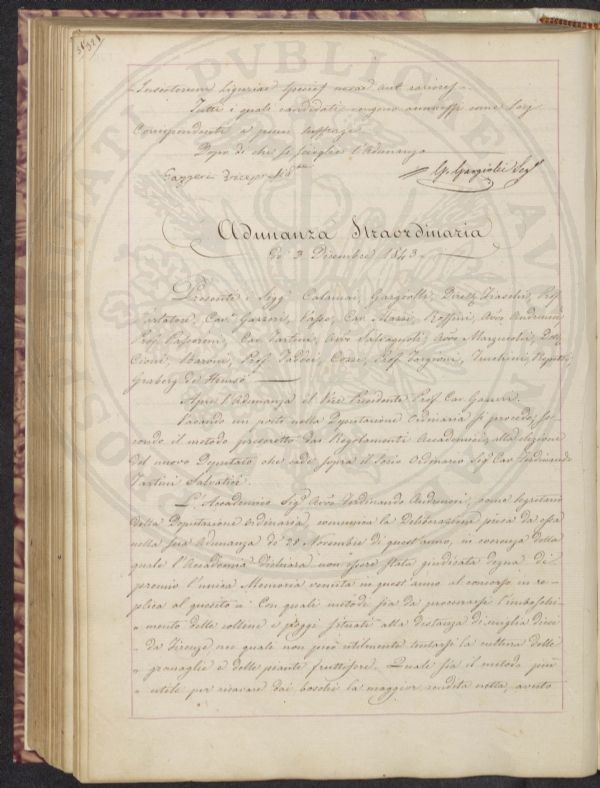 321
Insectorum Liguriae species novae aut rariores.
Tutti i quali candidati vengono ammessi come Soci
Corrispondenti a pieni suffragi.
Dopo di che si scioglie l'Adunanza
Gazzeri Vicepresid.te G. Gargiolli Seg.o
Adunanza Straordinaria
De' 3. Dicembre 1843.
Presenti i Sigg.i Calamai, Gargiolli, Dirett. Prof.
Cav. Gazzeri, Passe, Cav. Rossini, Avv. Andreucci
Prof. Passerini, Cav. Tartini, Avv. Salvagnoli, Avv. Marzucchi, Dott.
Cioni, Baroni, Prof. Taddei, Prof. Targioni,
Graberg de Hemsö
Apre l'Adunanza il Vice Presidente Prof. Cav. Gazzeri.
Vacando un posto nella Deputazione Ordinaria si procede, se-
condo il metodo prescritto dai Regolamenti Accademici, alla elezione
del nuovo Deputato che cade sopra il Socio Ordinario Sig. Cav. Ferdinando
Tartini Salvatici.
L'Accademico Sig. Avv. Ferdinando Andreucci, come Segretario
della Deputazione Ordinaria, comunica la Deliberazione presa da essa
nella sua Adunanza de' 28 Novembre di quest'anno, in coerenza della
quale l'Accademia dichiara non essere stata giudicata degna di
premio l'unica Memoria venuta in quest'anno al concorso in re-
plica al quesito " Con quali metodi sia da procurarsi l'imboschi-
" mento delle colline e poggi situati alla distanza di miglia dieci
" da Firenze, nei quali non può utilmente tentarsi la cultura delle
" granaglie e delle piante fruttifere. Quale sia il metodo più
" utile per ricavare dai boschi la maggior rendita netta, avuto